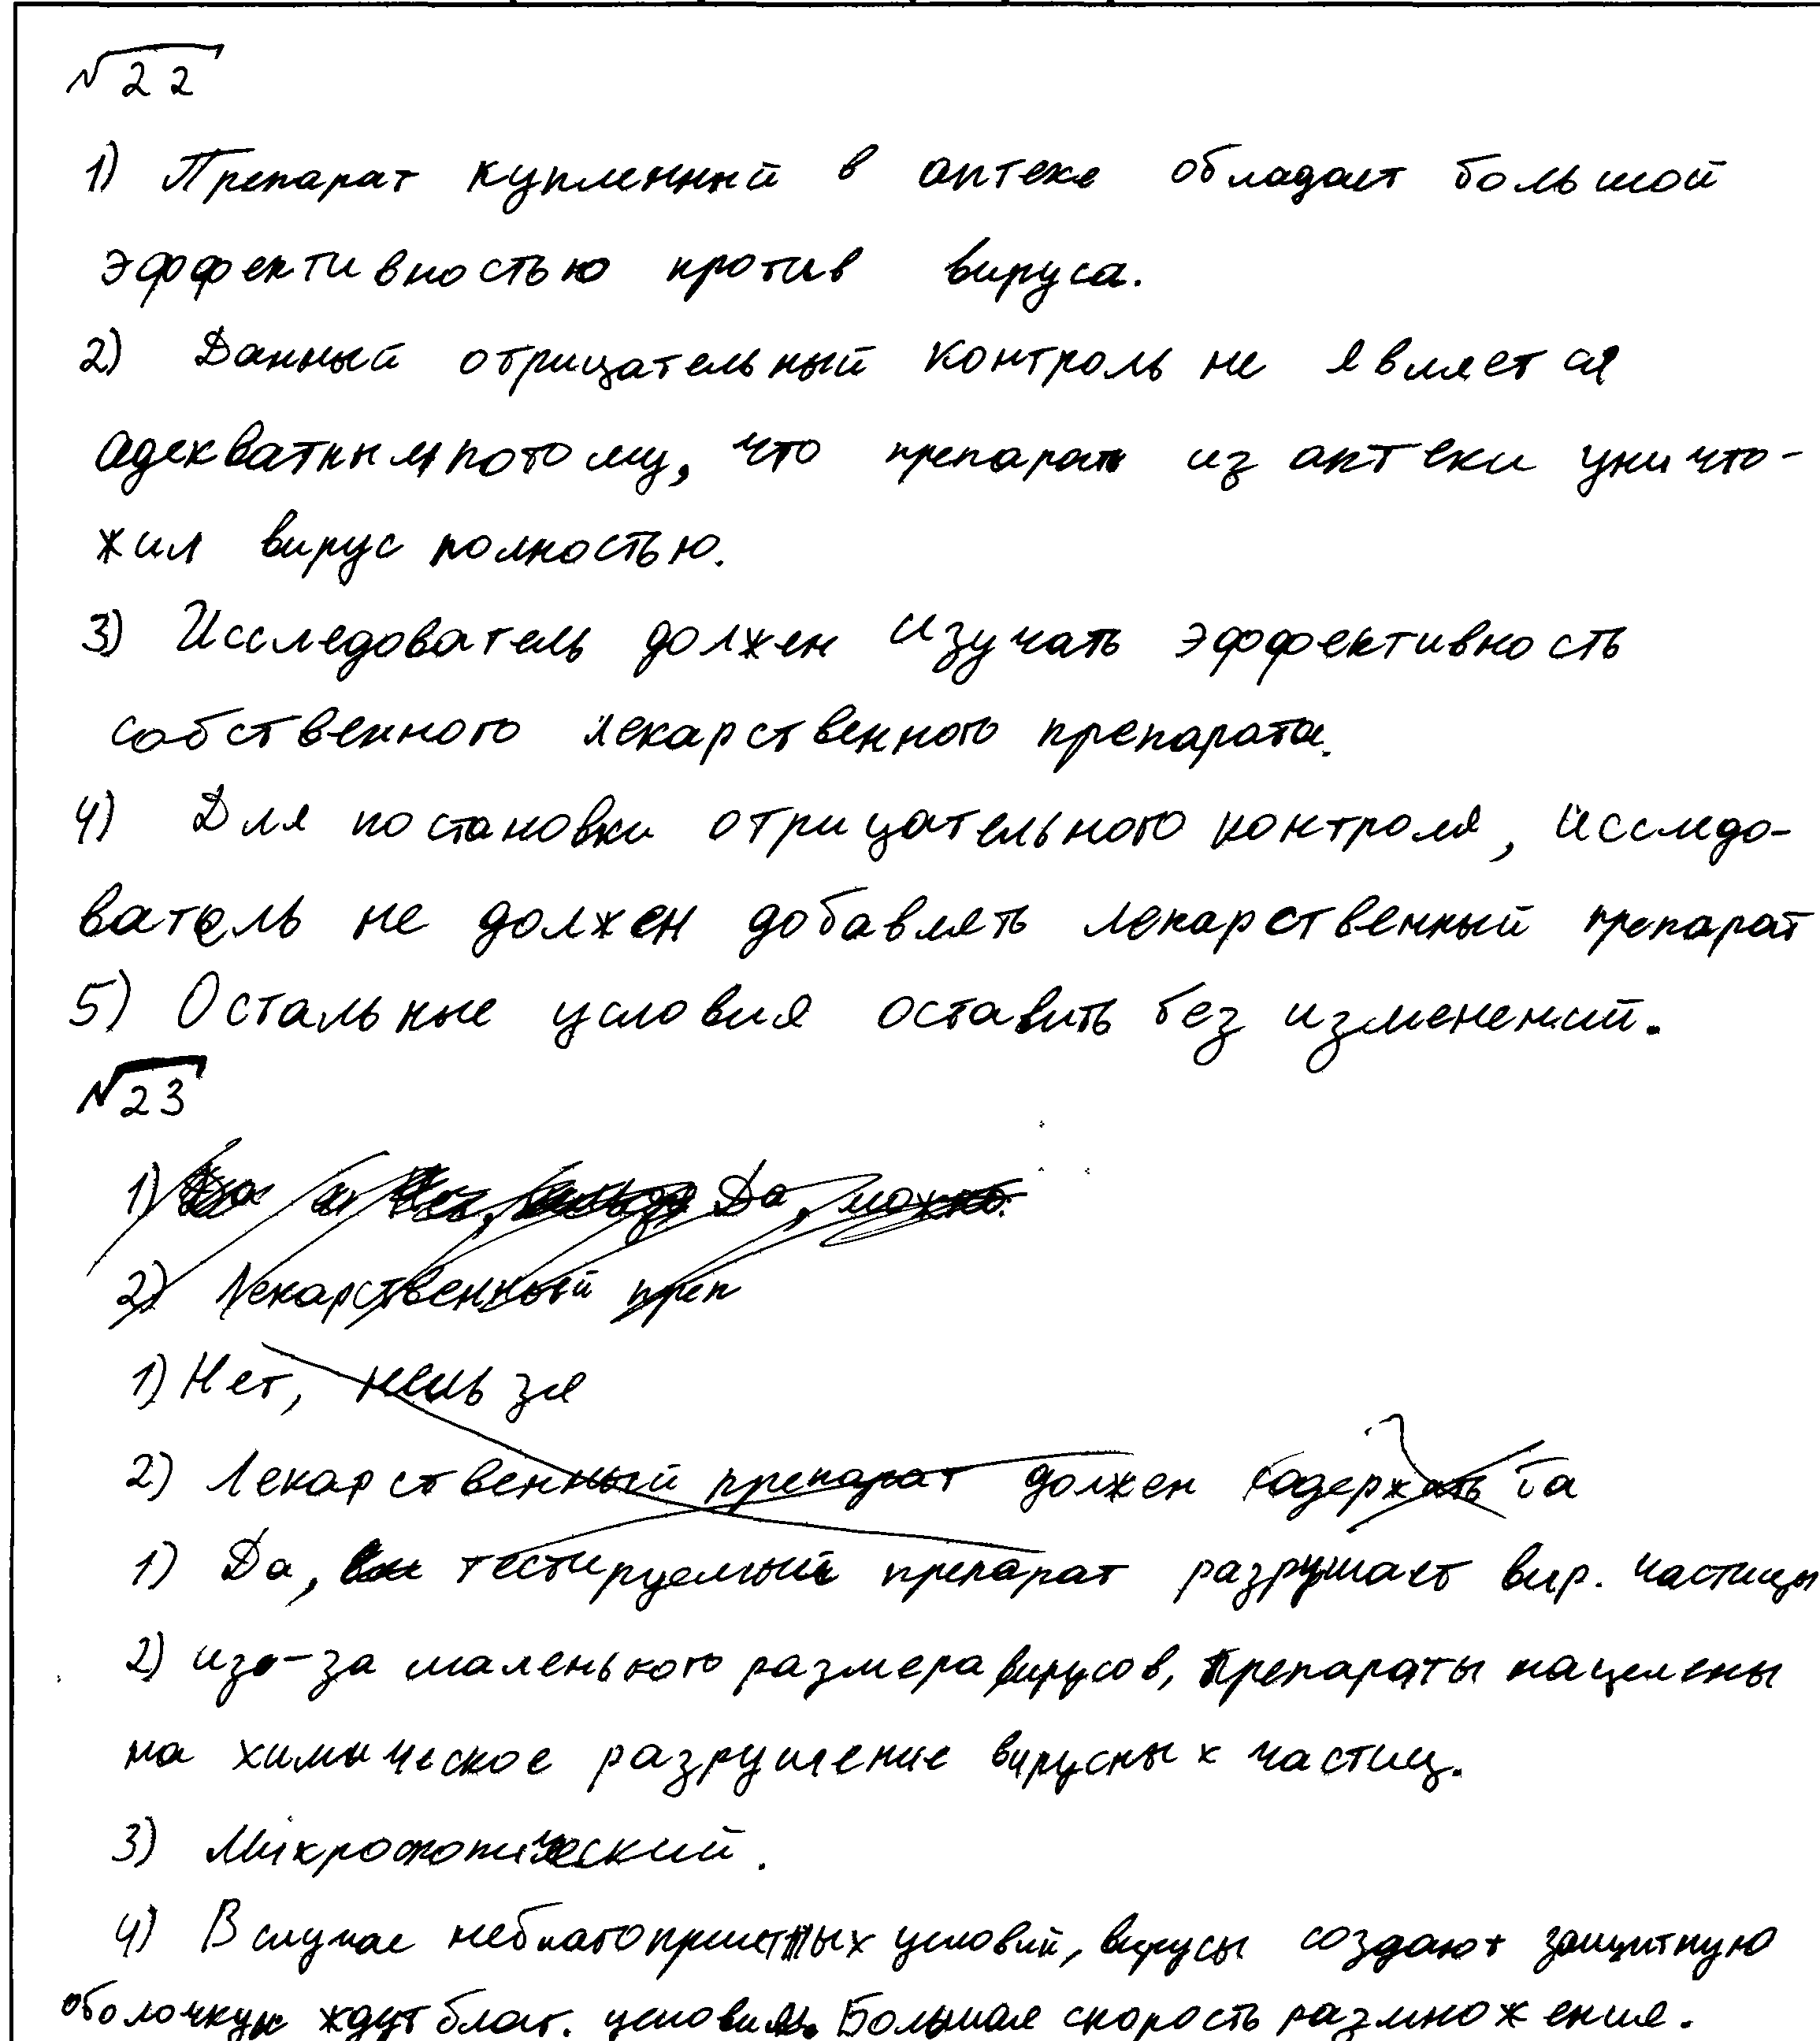 №22
1) Препарат купленный в аптеке обладает большой
эффективностью против вируса.
2) Данный отрицательный контроль не является
адекватным потому, что препарат из аптеки уничто-
жил вирус полностью.
3) Исследователь должен изучать эффективность
собственного лекарственного препарата.
4) Для постановки отрицательного контроля, исследо-
ватель не должен добавлять лекарственный препарат
5) Остальные условия оставить без изменений.
№23
1) Да, можно.
2) Лекарственный преп
1) Нет, нельзя
2) Лекарственный препарат должен содержать
1) Да, тестируемый препарат разрушает вир. частицы
2) из-за маленького размера вирусов, препараты нацелены
на химическое разрушение вирусных частиц.
3) Микроскопический.
4) В случае неблагоприятных условий, вирусы создают защитную
оболочку и ждут благ. условий. Большая скорость размножения.